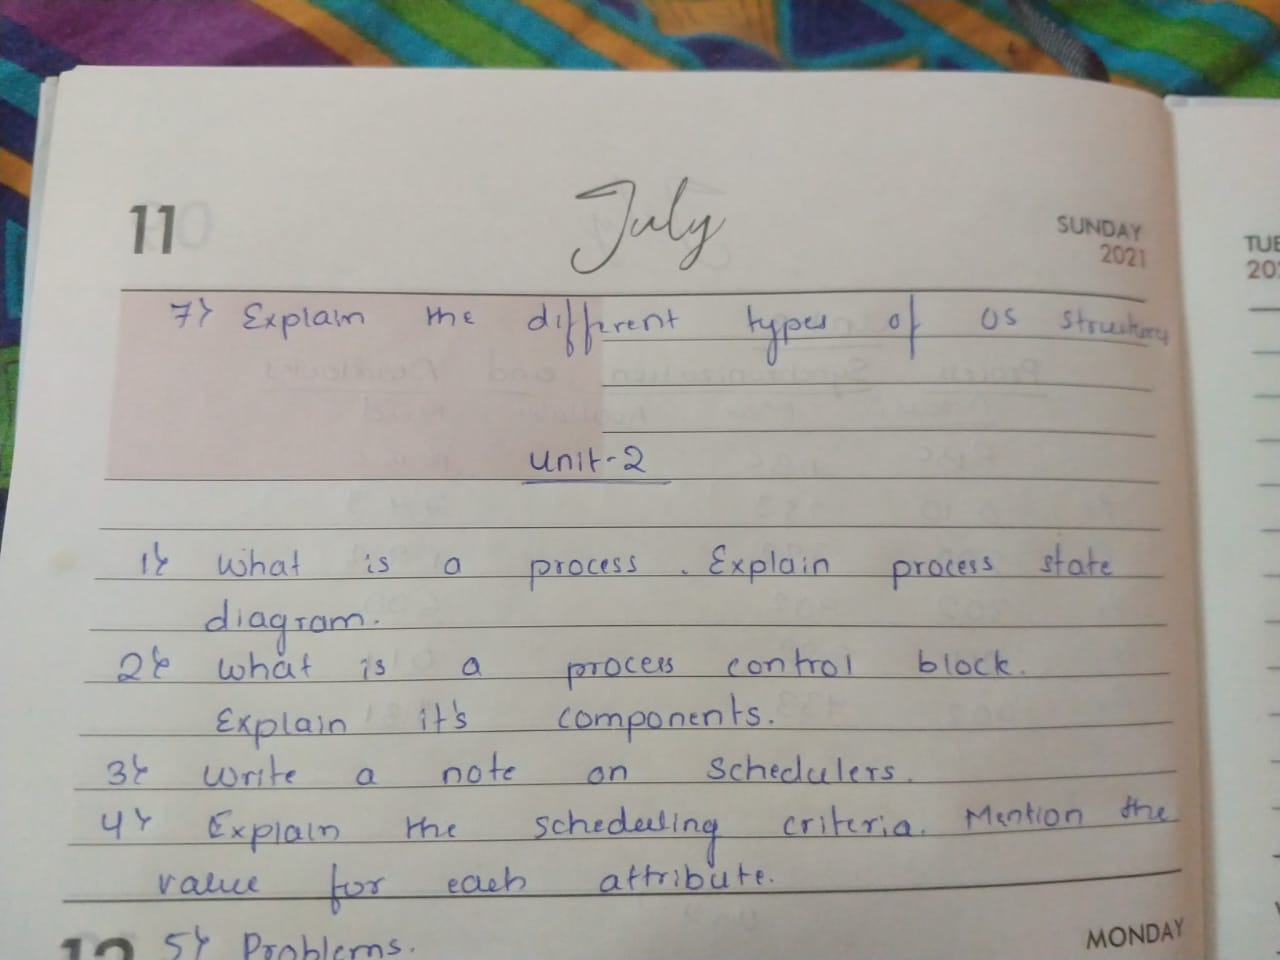 11 July SUNDAY
2021
7) Explain the different types of OS
Unit-2
1) What is a process. Explain process state
diagram.
2) What is a process control block.
Explain it's components.
3) Write a note on Schedulers.
4) Explain the scheduling criteria. Mention the
value for each attribute.
12 MONDAY
5) Problems.
TUE
20